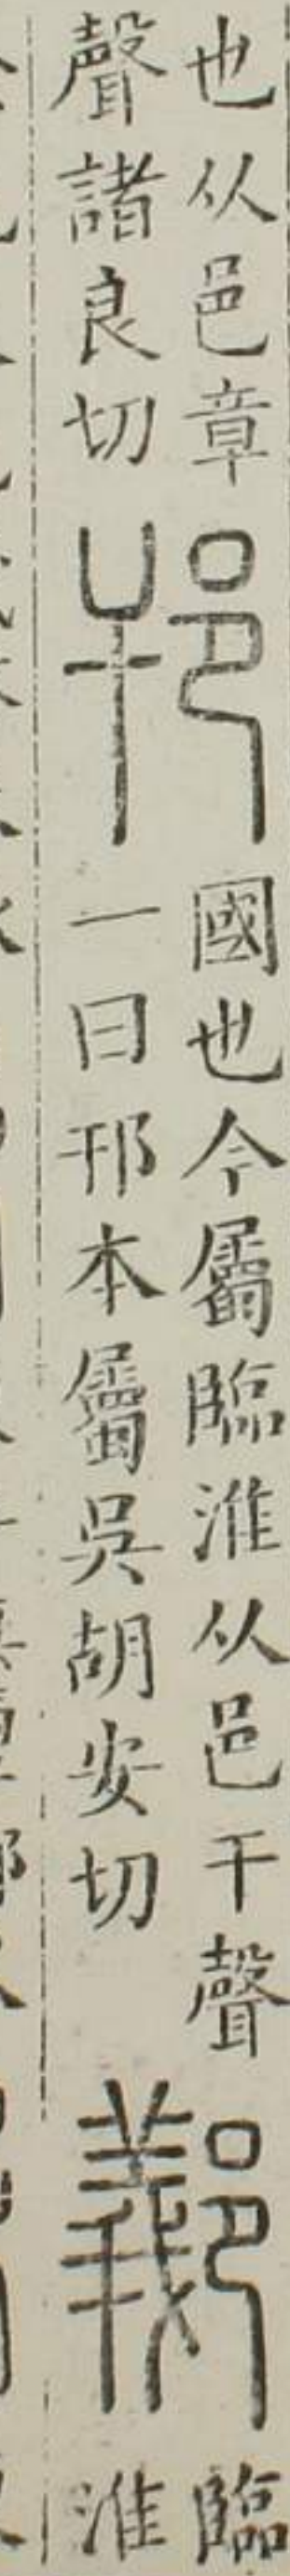 也从邑章
聲諸良切
邗
國也今屬臨淮从邑干聲
一曰邗本屬吳胡安切
鄯
臨
淮